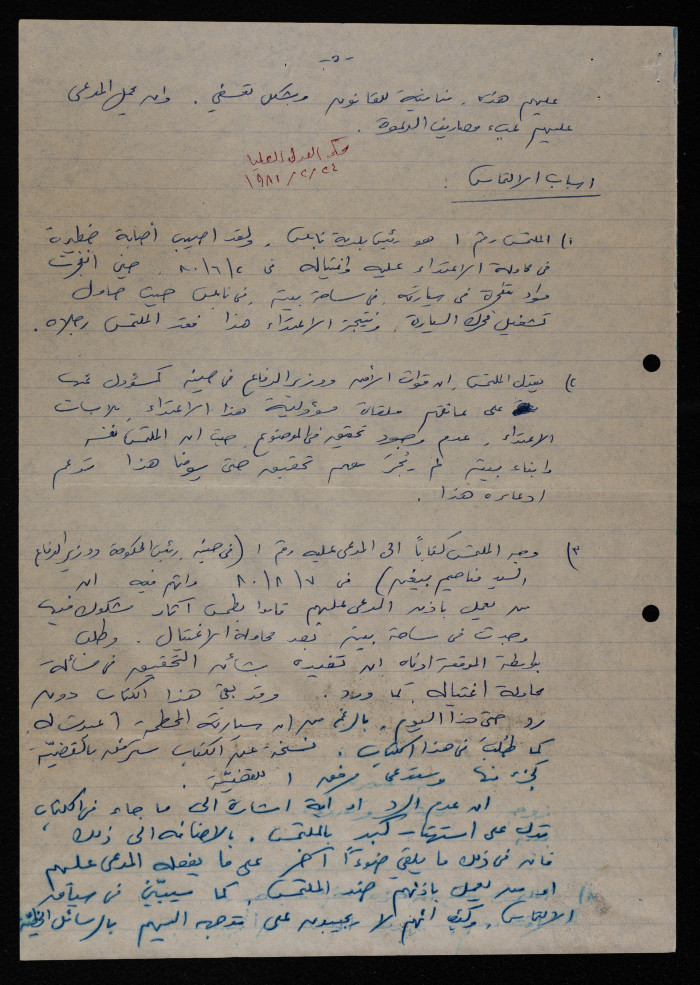 -٥-
عليهم هذه، منافية للقانون وبشكل تعسفي. وان يحمل المدعى
عليهم عبء ومصاريف الدعوة.
محكمة العدل العليا
٢٤/٢/١٩٨١
اسباب الالتماس:
١) الملتمس رقم ١ هو رئيس بلدية نابلس، ولقد اصيب اصابة خطيرة
في محاولة الاعتداء عليه واغتياله في ٢/٦/٨٠، حين انفجرت
مواد متفجرة في سيارته، في ساحة بيته، في نابلس حيث حاول
تشغيل محرك السيارة، ونتيجة الاعتداء هذا فقد الملتمس رجلاه.
٢) يعتقد الملتمس، ان قوات الأمن ووزير الدفاع في حينه كمسؤول عنها
على عاتقهم ملقاة مسؤولية هذا الاعتداء، ملابسات
الاعتداء، عدم وجود تحقيق في الموضوع، حيث ان الملتمس نفسه
وابناء بيته لم يُجرَ معهم تحقيق حتى يومنا هذا تدعم
ادعاءه هذا.
٣) وجه الملتمس كتاباً الى المدعى عليه رقم ١ (في حينه، رئيس الحكومة ووزير الدفاع
السيد مناحيم بيغن) في ٧/٨/٨٠ واتهم فيه ان
من يعمل باذن المدعى عليهم قاموا بطمس آثار شكوك فيها
وجدت في ساحة بيته بعد محاولة الاغتيال. وطلب
بواسطة الموقعة ادناه ان تفيده بشأن التحقيق في مسألة
محاولة اغتياله، كما ورد. وقد بقي هذا الكتاب دون
رد حتى هذا اليوم، بالرغم من ان سيارته المحطمة اعيدت له،
كما طُلب في هذا الكتاب. نسخة عن الكتاب سترفق بالقضيّة
كجزء منها وستدعى مرفق ١ للقضيّة.
ان عدم الرد او اية اشارة الى ما جاء في الكتاب،
تدل على استهتار كبير بالملتمس. بالاضافة الى ذلك
فان في ذلك ما يلقي ضوءًا آخر على ما يفعله المدعى عليهم
او من يعمل باذنهم ضد الملتمس، كما سيبيّن في سياق
الالتماس، وكيف انهم لا يجيبون على متوجه اليهم بالرسائل